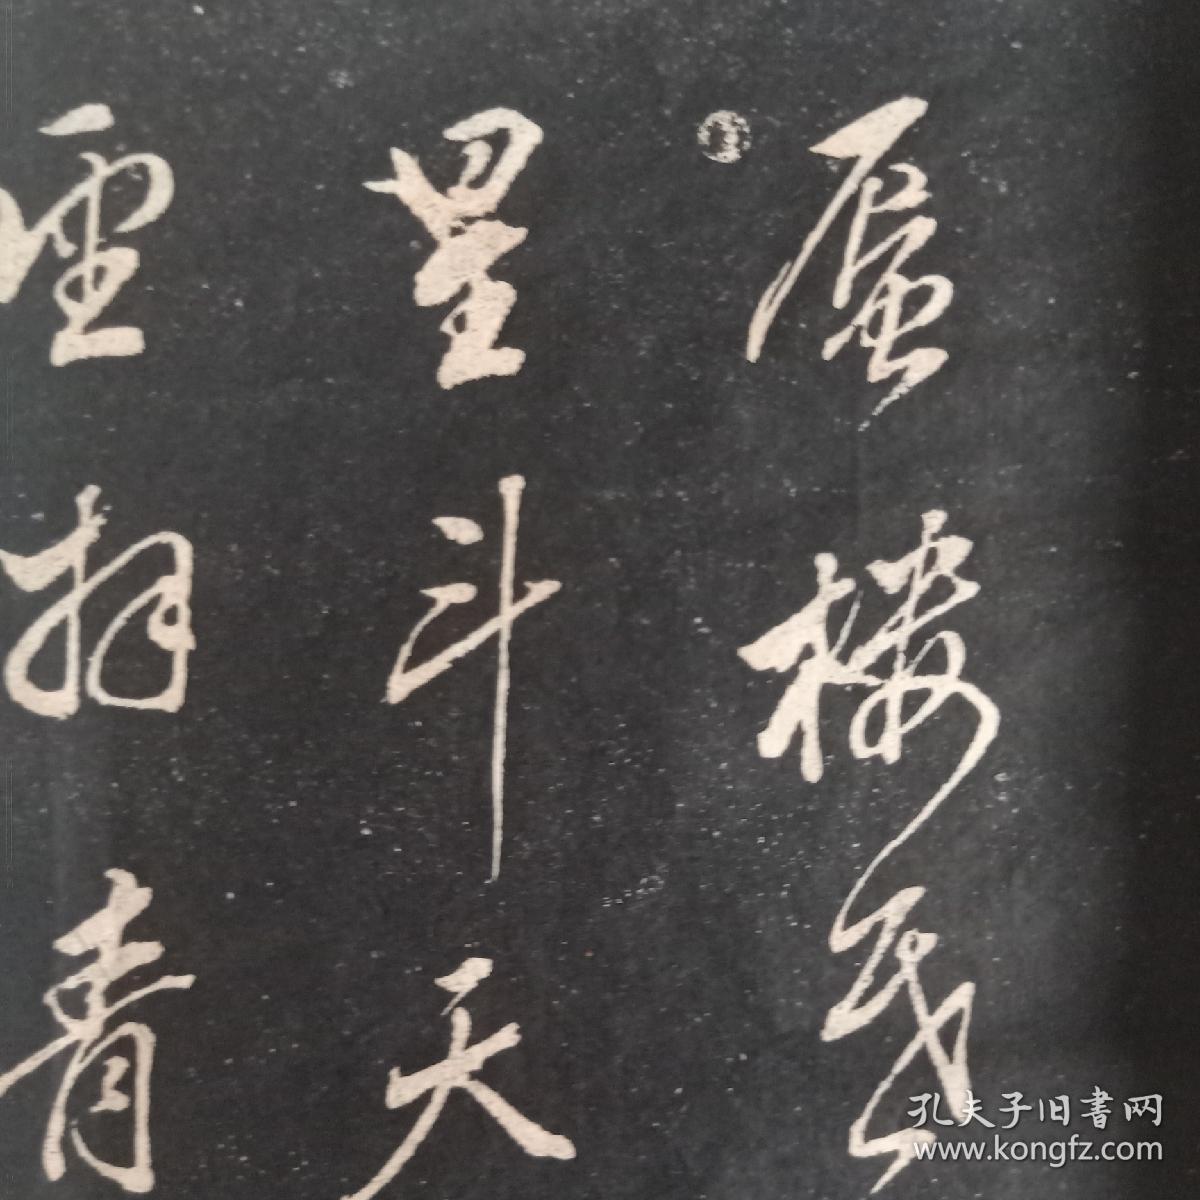 蜃樓
星斗天
青
孔夫子旧書网
www.kongfz.com